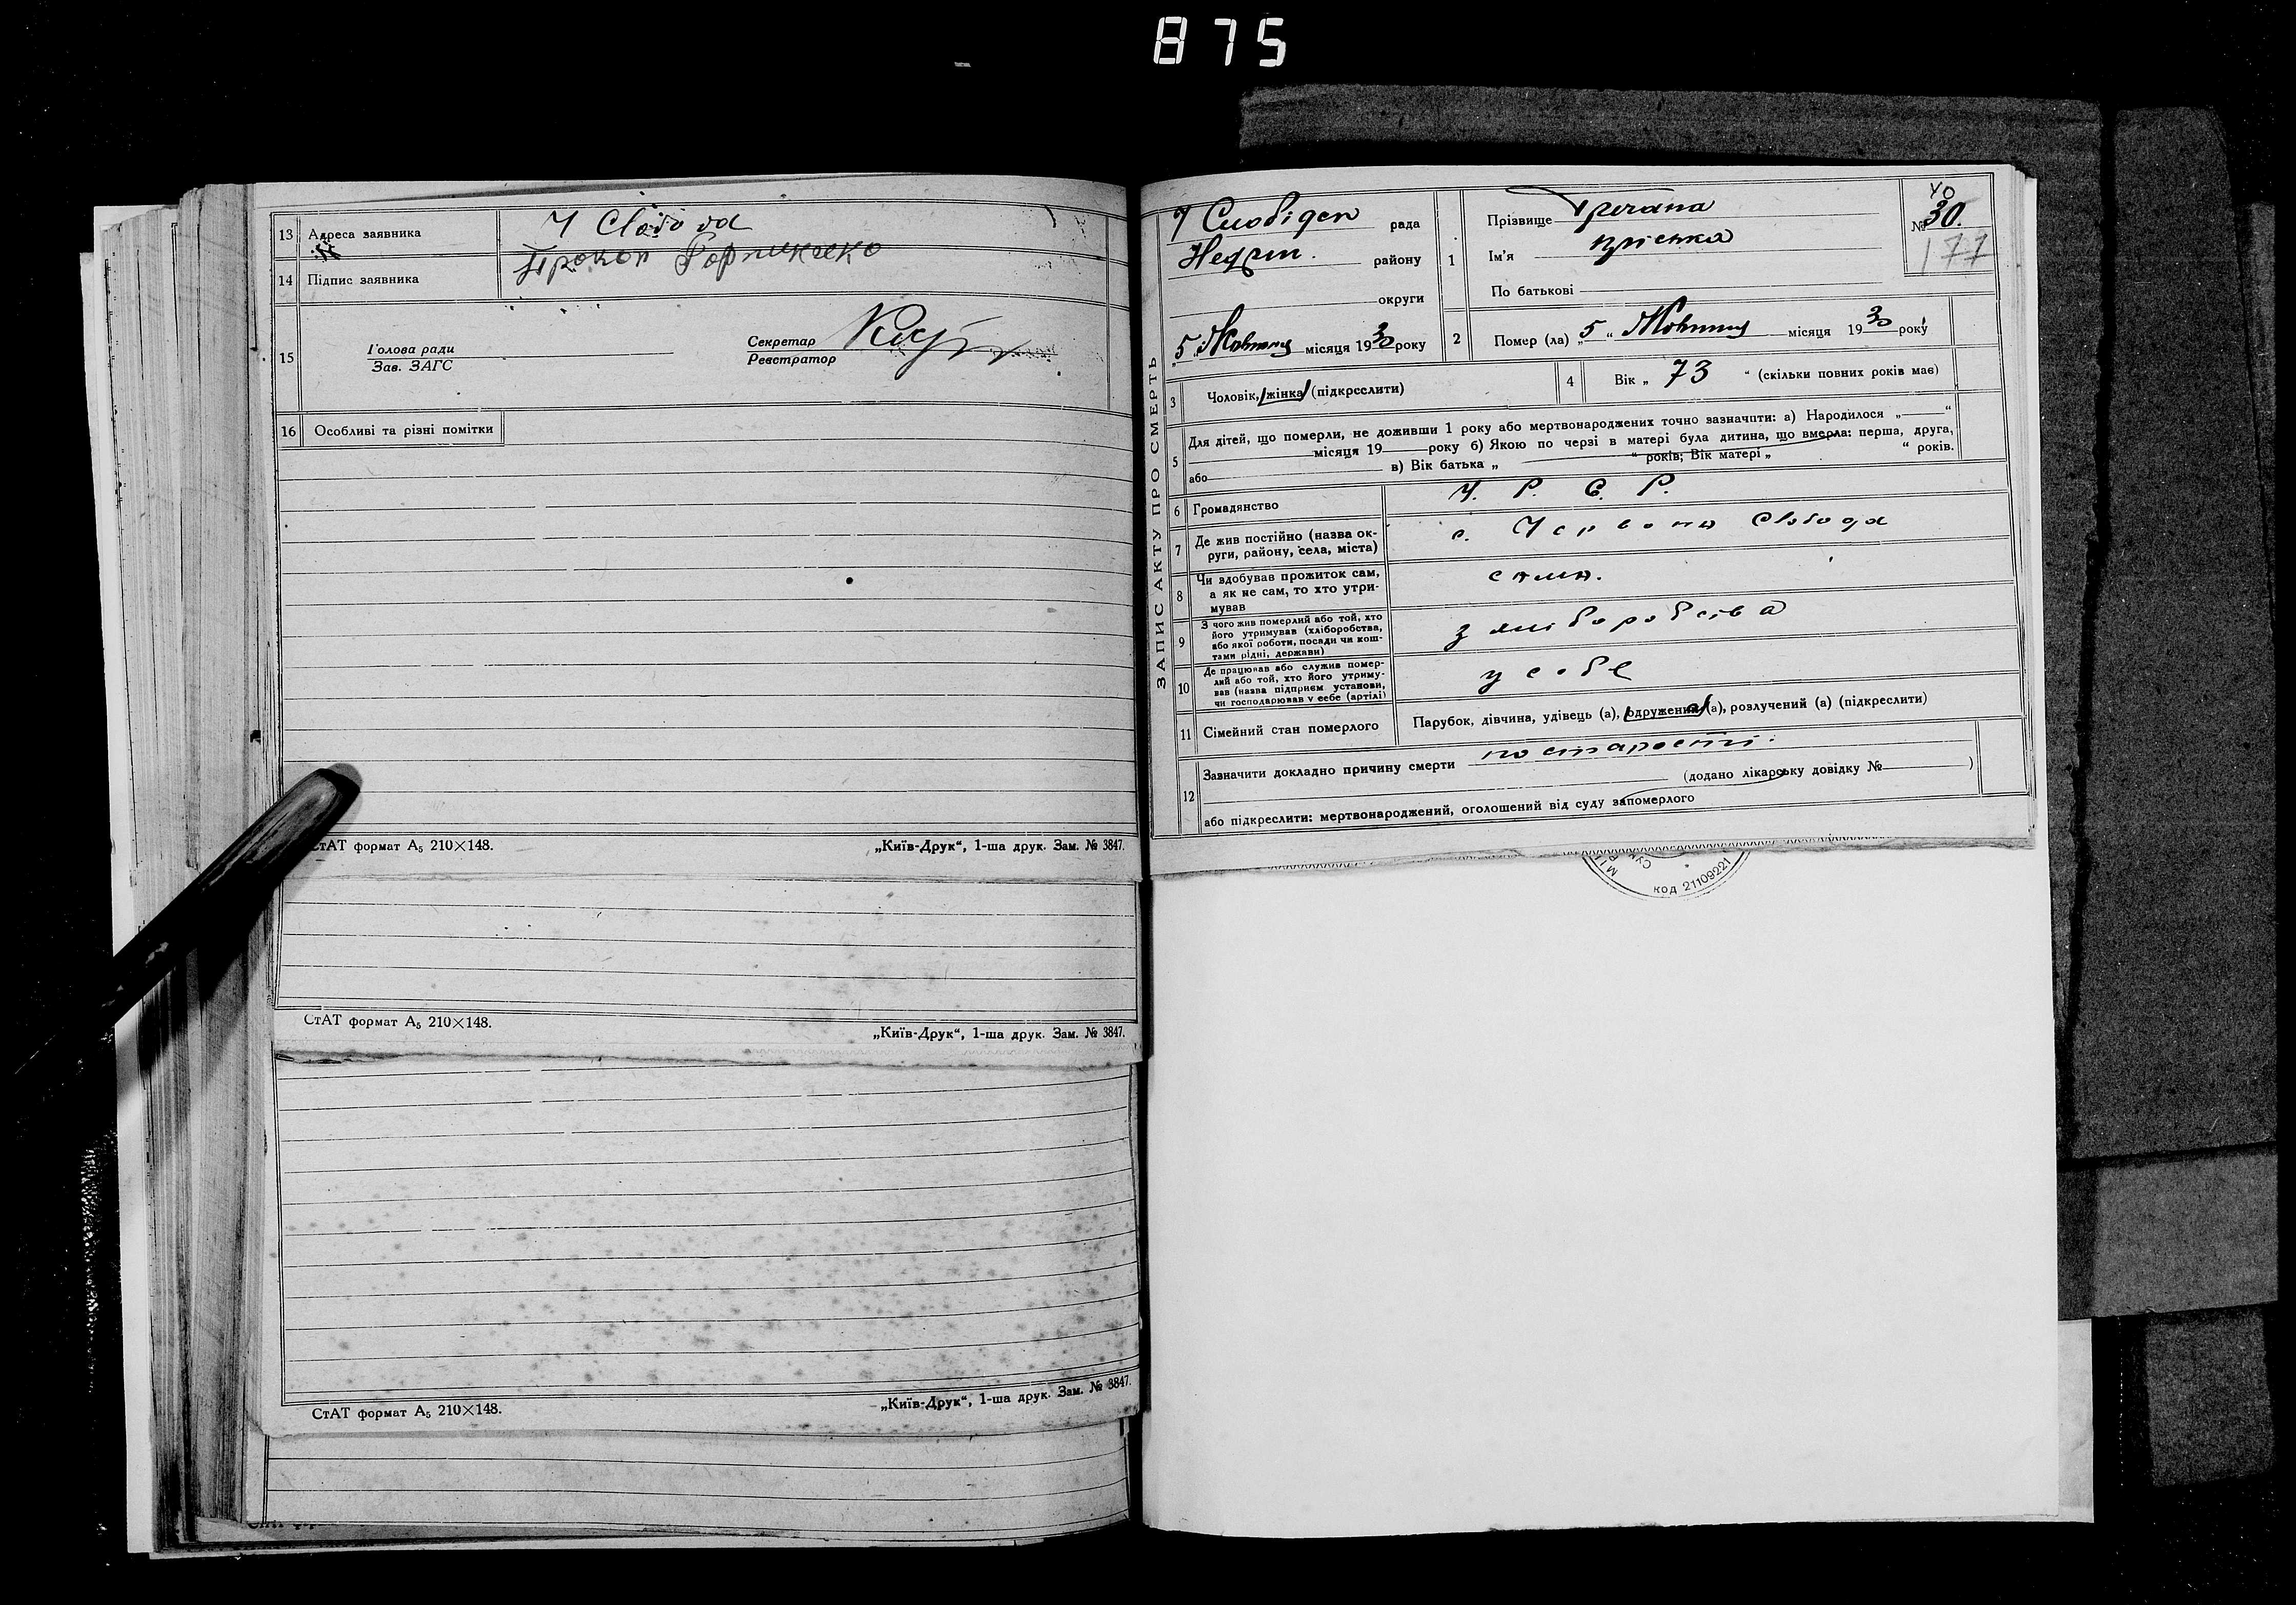 875
13 Адреса заявника
Ч Слобода
14 Підпис заявника
Прокоп
15 Голова ради
Зав. ЗАГС
Секретар
Реєстратор
16 Особливі та різні помітки
СтАТ формат А₅ 210×148. „Київ-Друк“, 1-ша друк. Зам. № 3847.
СтАТ формат А₅ 210×148. „Київ-Друк“, 1-ша друк. Зам. № 3847.
СтАТ формат А₅ 210×148. „Київ-Друк“, 1-ша друк. Зам. № 3847.
ЗАПИС АКТУ ПРО СМЕРТЬ
Ч Слобідськ рада
району
округи
5 Жовтня місяця 1930 року
1 Прізвище
Ім'я Пріська
По батькові
40
№ 30.
177
2 Помер (ла) „5“ Жовтня місяця 1930 року
3 Чоловік, жінка (підкреслити)
4 Вік „73“ (скільки повних років має)
5 Для дітей, що померли, не доживши 1 року або мертвонароджених точно зазначити: а) Народилося „ “
місяця 19 року б) Якою по черзі в матері була дитина, що вмерла: перша, друга,
або в) Вік батька „ “ років; Вік матері „ “ років.
6 Громадянство У. Р. С. Р.
7 Де жив постійно (назва ок-
руги, району, села, міста)
с. Червона Слобода
8 Чи здобував прожиток сам,
а як не сам, то хто утри-
мував
сама.
9 З чого жив померлий або той, хто
його утримував (хліборобства,
або якої роботи, посади чи кош-
тами рідні, держави)
з хліборобства
10 Де працював або служив помер-
лий або той, хто його утриму-
вав (назва підприєм установи,
чи господарював у себе (артілі)
у себе
11 Сімейний стан померлого Парубок, дівчина, удівець (а), одружений (а), розлучений (а) (підкреслити)
12 Зазначити докладно причину смерти по старости.
(додано лікарську довідку № )
або підкреслити: мертвонароджений, оголошений від суду запомерлого
код 21109221